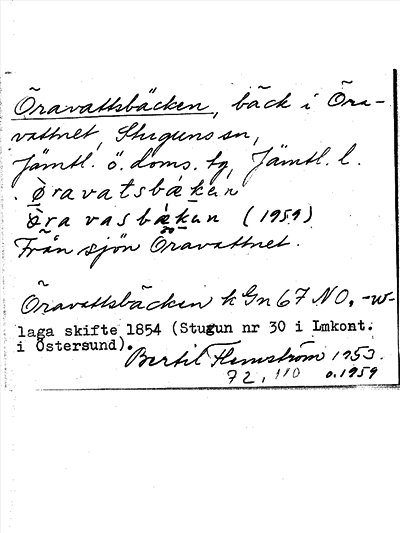 Öravattsbäcken, bäck i Öra-
vattnet, Stuguns sn,
Jämtl. ö. doms. tg, Jämtl. l.
Øravatsbækan
Øra vasbækan (1959)
Från sjön Öravattnet.
Öravattsbäcken k Gn 67 NO, -w-
laga skifte 1854 (Stugun nr 30 i Lmkont.
i Östersund).
Bertil Flemström 1953.
72, 110 o. 1959